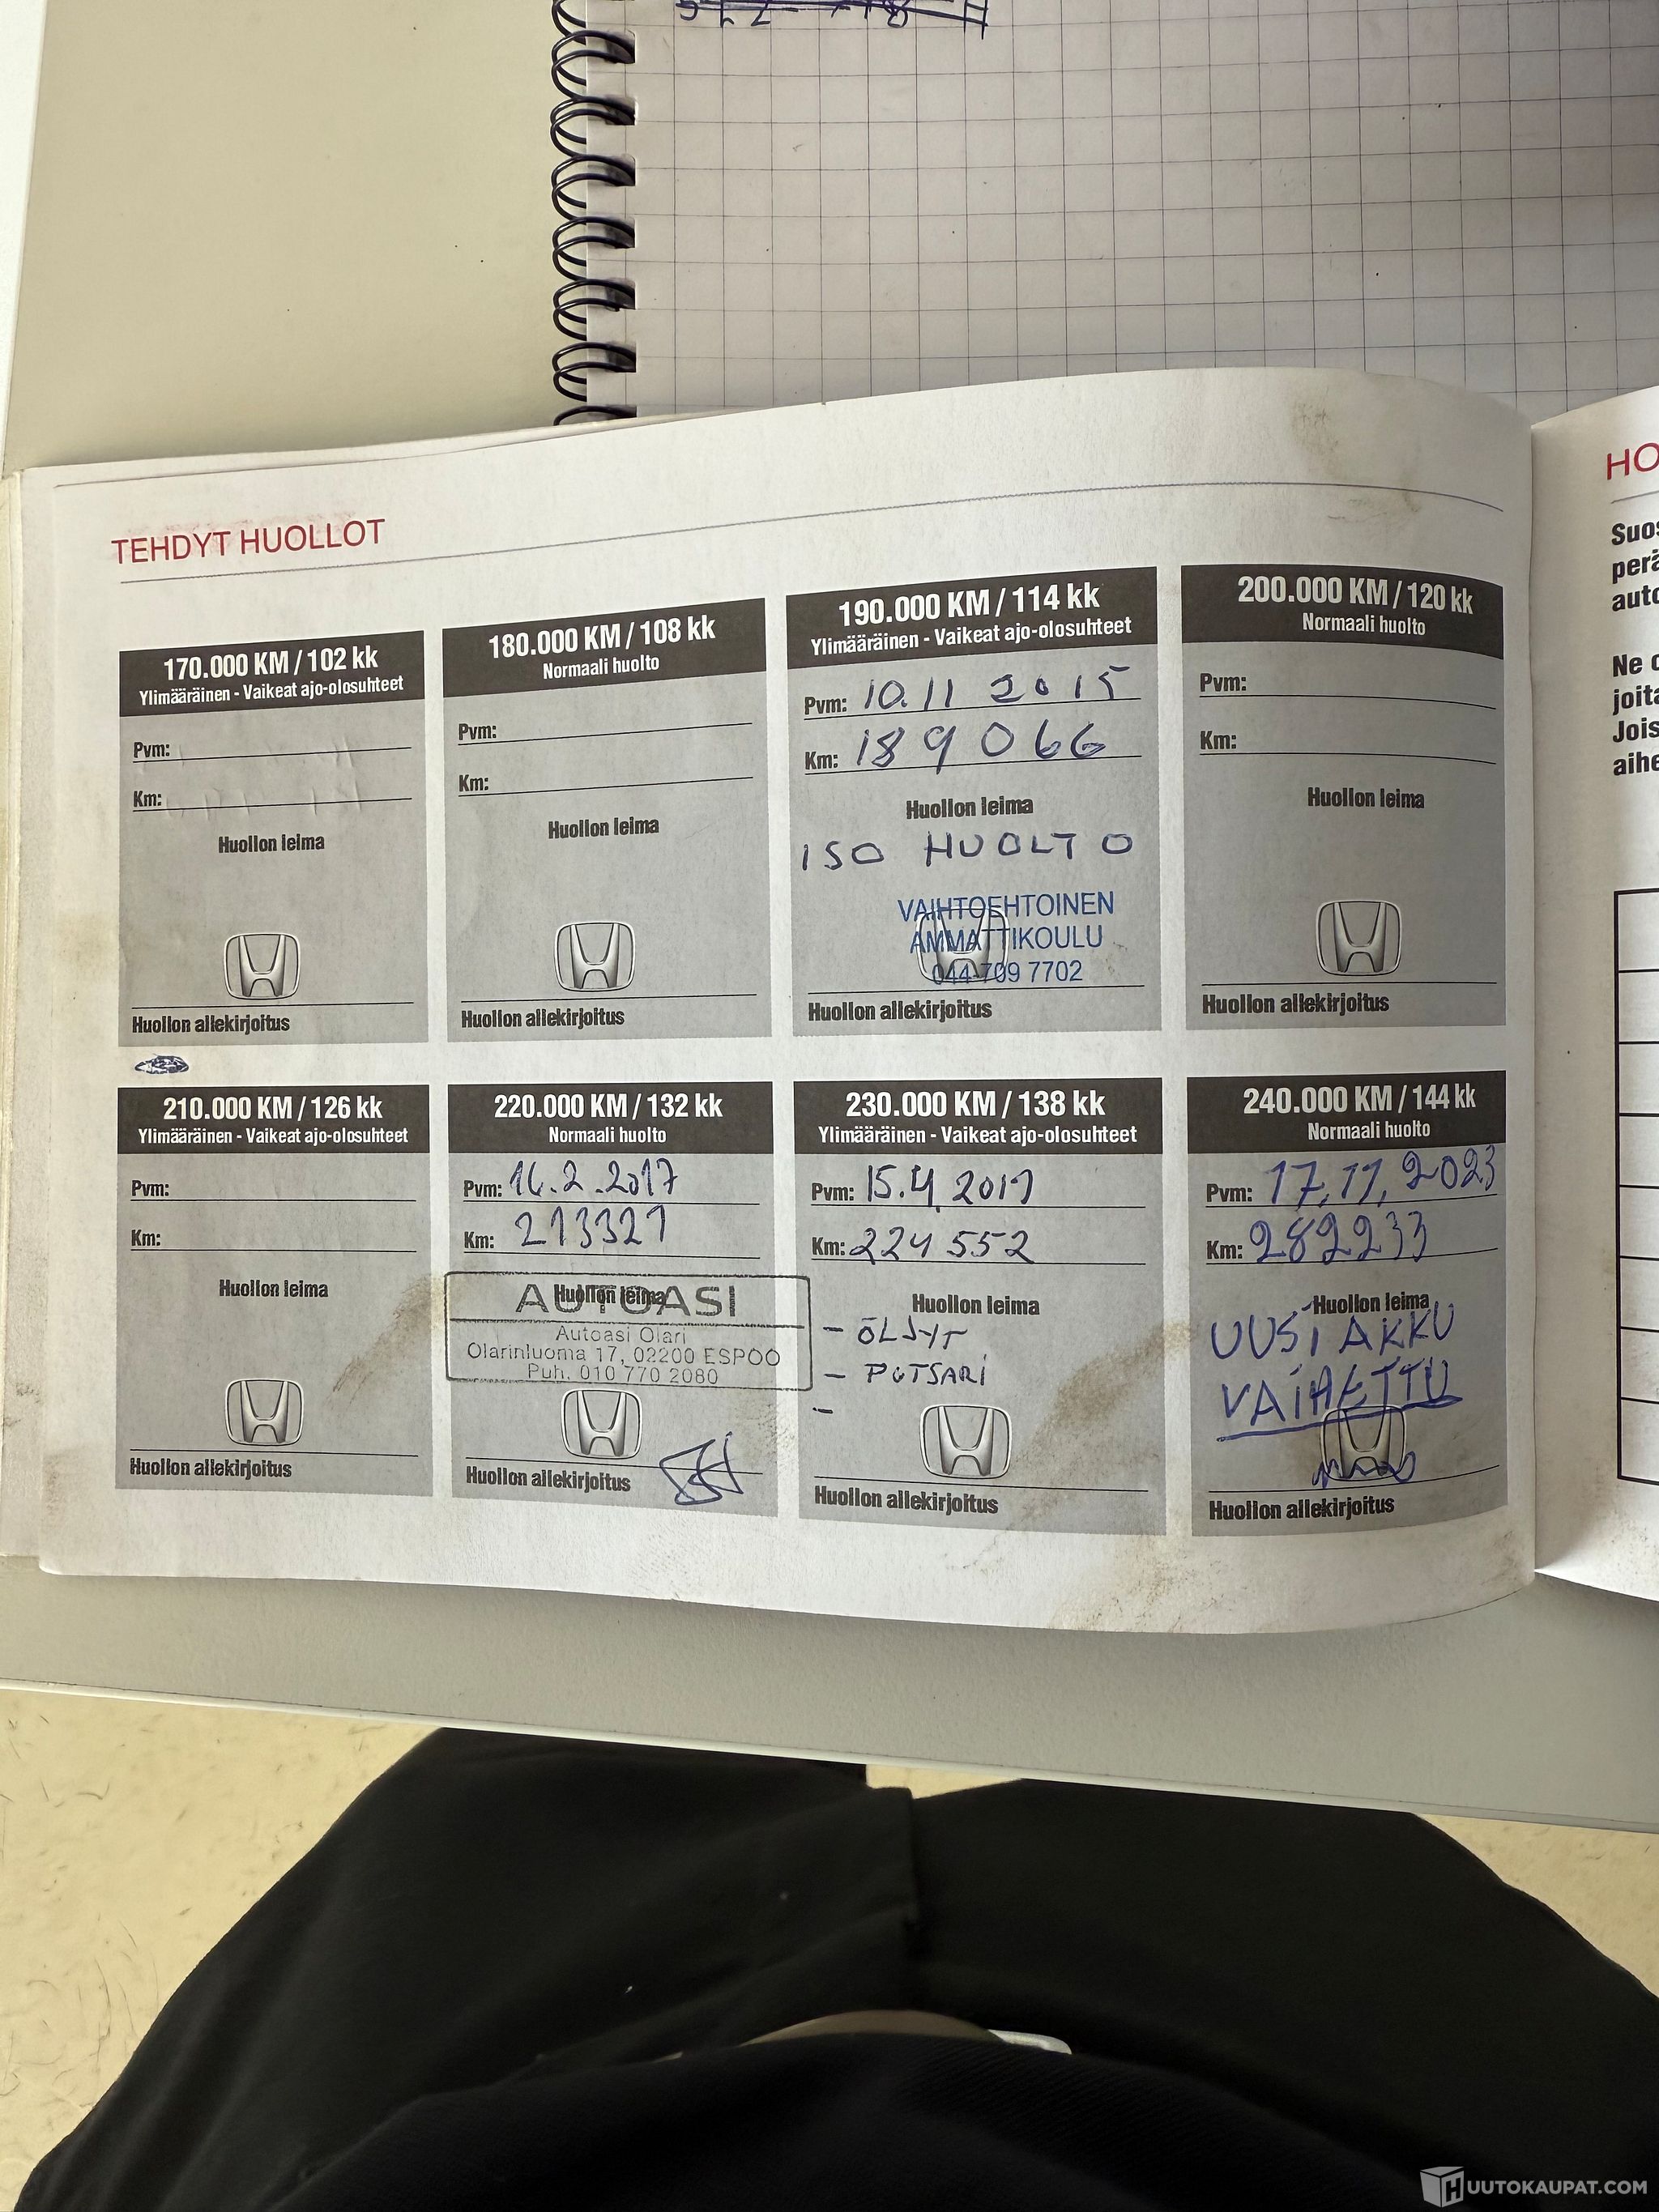 TEHDYT HUOLLOT
170.000 KM / 102 kk
Ylimääräinen - Vaikeat ajo-olosuhteet
Pvm:
Km:
Huollon leima
Huollon allekirjoitus
180.000 KM / 108 kk
Normaali huolto
Pvm:
Km:
Huollon leima
Huollon allekirjoitus
190.000 KM / 114 kk
Ylimääräinen - Vaikeat ajo-olosuhteet
Pvm: 10.11 2015
Km: 189066
Huollon leima
ISO HUOLTO
VAIHTOEHTOINEN
AMMATTIKOULU
044-709 7702
Huollon allekirjoitus
200.000 KM / 120 kk
Normaali huolto
Pvm:
Km:
Huollon leima
Huollon allekirjoitus
210.000 KM / 126 kk
Ylimääräinen - Vaikeat ajo-olosuhteet
Pvm:
Km:
Huollon leima
Huollon allekirjoitus
220.000 KM / 132 kk
Normaali huolto
Pvm: 16.2.2017
Km: 213321
Huollon leima
AUTOASI
Autoasi Olari
Olarinluoma 17, 02200 ESPOO
Puh. 010 770 2080
Huollon allekirjoitus
230.000 KM / 138 kk
Ylimääräinen - Vaikeat ajo-olosuhteet
Pvm: 15.4.
Km: 224 552
Huollon leima
- ÖLJYT
-
-
Huollon allekirjoitus
240.000 KM / 144 kk
Normaali huolto
Pvm: 17.11.2023
Km: 282233
Huollon leima
UUSI AKKU
VAIHETTU
Huollon allekirjoitus
HO
Suos
perä
auto
Ne o
joita
Jois
aihe
HUUTOKAUPAT.COM